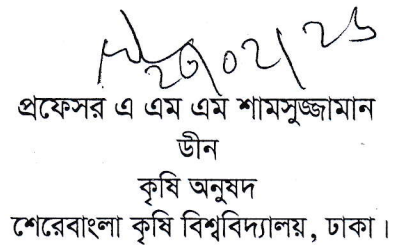 ২০/০২/২৬
প্রফেসর এ এম এম শামসুজ্জামান
ডীন
কৃষি অনুষদ
শেরেবাংলা কৃষি বিশ্ববিদ্যালয়, ঢাকা।